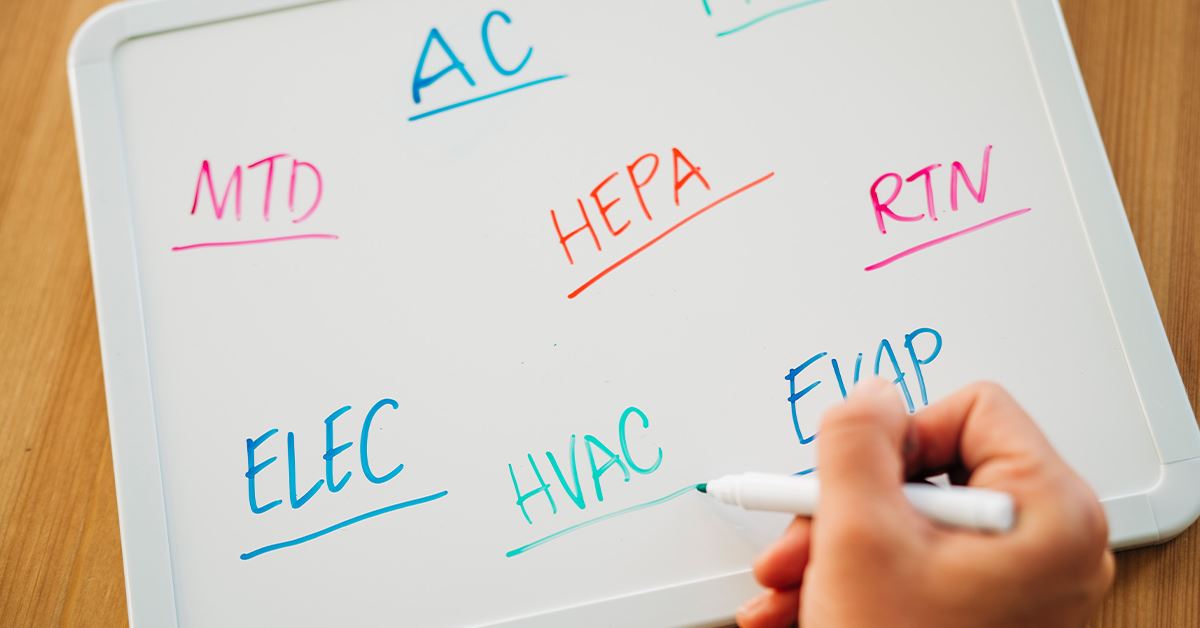 AC
MTD
HEPA
RTN
EVAP
ELEC
HVAC